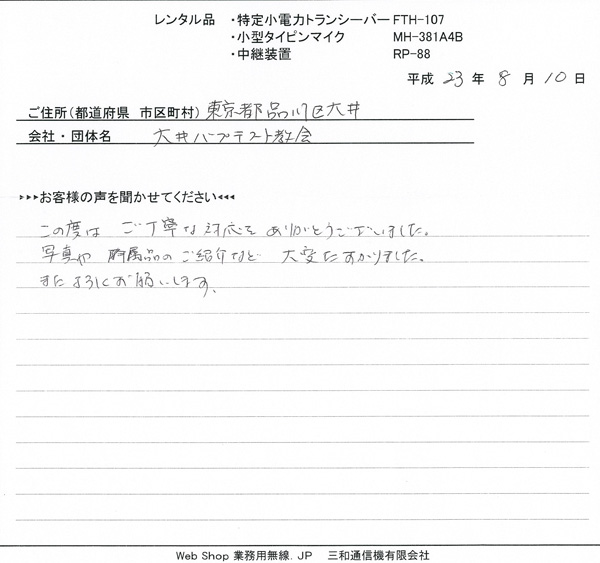 レンタル品 ・特定小電力トランシーバー FTH-107
・小型タイピンマイク MH-381A4B
・中継装置 RP-88
平成 23 年 8 月 10 日
ご住所(都道府県 市区町村) 東京都品川区大井
会社・団体名 大井バプテスト教会
▸▸▸お客様の声を聞かせてください◂◂◂
この度は ご丁寧な対応を ありがとうございました。
写真や 附属品のご紹介など 大変たすかりました。
またよろしくお願いします。
Web Shop 業務用無線.JP 三和通信機有限会社